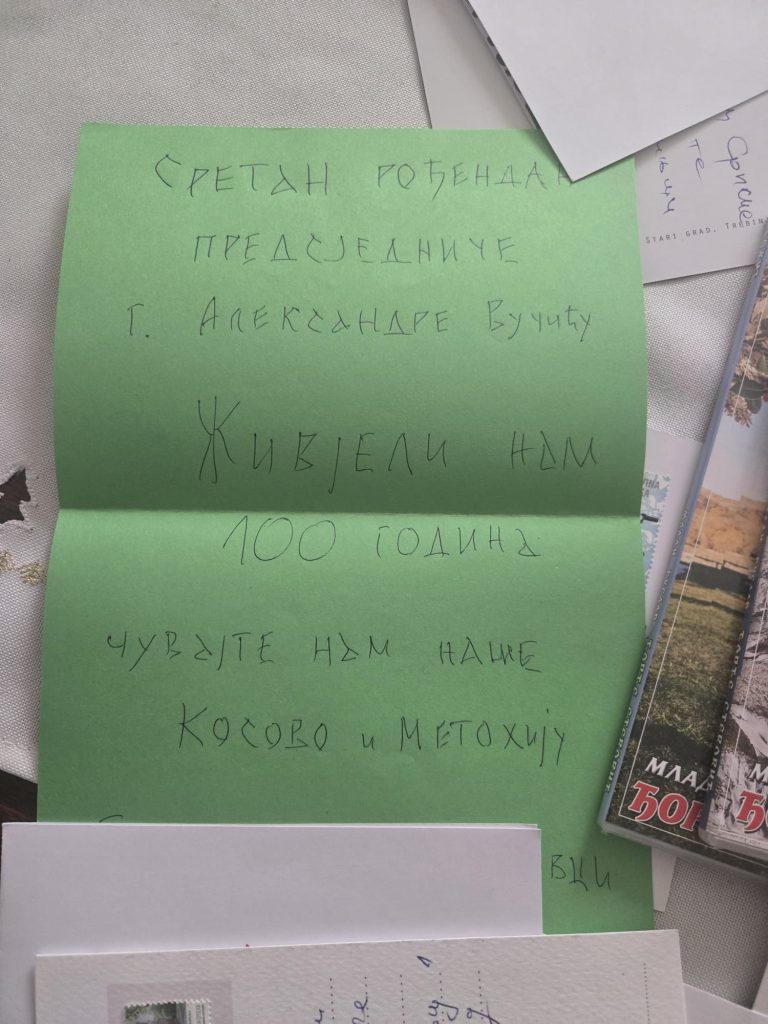 СРЕТАН РОЂЕНДАН
ПРЕДСЈЕДНИЧЕ
Г. АЛЕКСАНДРЕ ВУЧИЋУ
ЖИВЈЕЛИ НАМ
100 ГОДИНА
ЧУВАЈТЕ НАМ НАШЕ
КОСОВО и МЕТОХИЈУ
ВЦИ
Српске
те
STARI GRAD, TREBIN
МЛАД
ЂОР